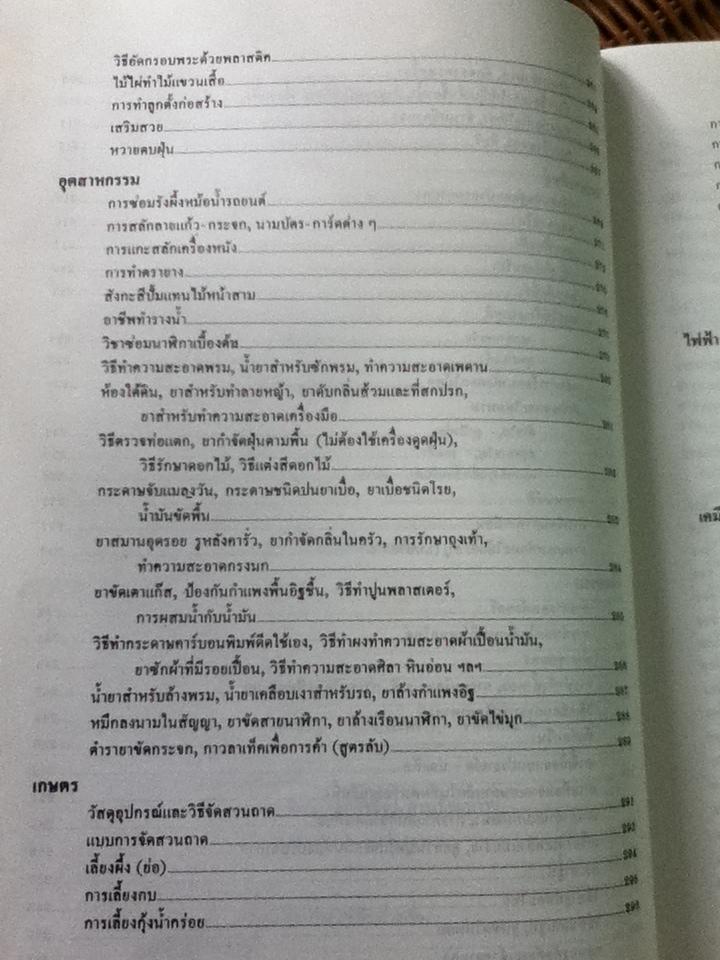 วิธีอัดกรอบพระด้วยพลาสติก
ไม้ไผ่ทำไม้แขวนเสื้อ
การทำลูกตั้งก่อสร้าง
เสริมสวย
หวายคบฝุ่น
อุตสาหกรรม
การซ่อมรังผึ้งหม้อน้ำรถยนต์
การสลักลายแก้ว-กระจก, นามบัตร-การ์ดต่าง ๆ
การแกะสลักเครื่องหนัง
การทำตรายาง
สังกะสีปั๊มแทนไม้หน้าสาม
อาชีพทำรางน้ำ
วิชาซ่อมนาฬิกาเบื้องต้น
วิธีทำความสะอาดพรม, น้ำยาสำหรับซักพรม, ทำความสะอาดเพดาน
ห้องใต้ดิน, ยาสำหรับทำลายหญ้า, ยาดับกลิ่นส้วมและที่สกปรก,
ยาสำหรับทำความสะอาดเครื่องมือ 281
วิธีตรวจท่อแตก, ยากำจัดฝุ่นตามพื้น (ไม่ต้องใช้เครื่องดูดฝุ่น),
วิธีรักษาดอกไม้, วิธีแต่งสีดอกไม้ 282
กระดาษจับแมลงวัน, กระดาษชนิดปนยาเบื่อ, ยาเบื่อชนิดโรย,
น้ำมันขัดพื้น 283
ยาสมานอุดรอย รูหลังคารั่ว, ยากำจัดกลิ่นในครัว, การรักษาถุงเท้า,
ทำความสะอาดกรงนก 284
ยาขัดเตาแก๊ส, ป้องกันกำแพงพื้นอิฐชื้น, วิธีทำปูนพลาสเตอร์,
การผสมน้ำกับน้ำมัน 285
วิธีทำกระดาษคาร์บอนพิมพ์ดีดใช้เอง, วิธีทำผงทำความสะอาดผ้าเปื้อนน้ำมัน,
ยาซักผ้าที่มีรอยเปื้อน, วิธีทำความสะอาดศิลา หินอ่อน ฯลฯ 286
น้ำยาสำหรับล้างพรม, น้ำยาเคลือบเงาสำหรับรถ, ยาล้างกำแพงอิฐ 287
หมึกลงนามในสัญญา, ยาขัดสายนาฬิกา, ยาล้างเรือนนาฬิกา, ยาขัดไข่มุก 288
ตำรายาขัดกระจก, กาวลาเท็คเพื่อการค้า (สูตรลับ) 289
เกษตร
วัสดุอุปกรณ์และวิธีจัดสวนถาด 291
แบบการจัดสวนถาด 293
เลี้ยงผึ้ง (ย่อ) 294
การเลี้ยงกบ 295
การเลี้ยงกุ้งน้ำกร่อย 298
ไฟฟ้า